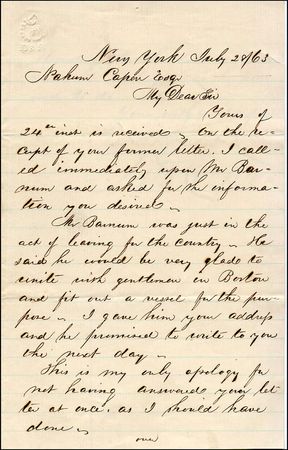 New York July 28/63
Nahum Capen Esqr
My Dear Sir
Yours of
24th inst is received – On the re-
ceipt of your former letter, I call-
ed immediately upon Mr Bar-
num and asked for the informa-
tion you desired –
Mr Barnum was just in the
act of leaving for the country – He
said he would be very glad to
unite with gentlemen in Boston
and fit out a vessel for the pur-
pose – I gave him your address
and he promised to write to you
the next day –
This is my only apology for
not having answered your let-
ter at once, as I should have
done –
over